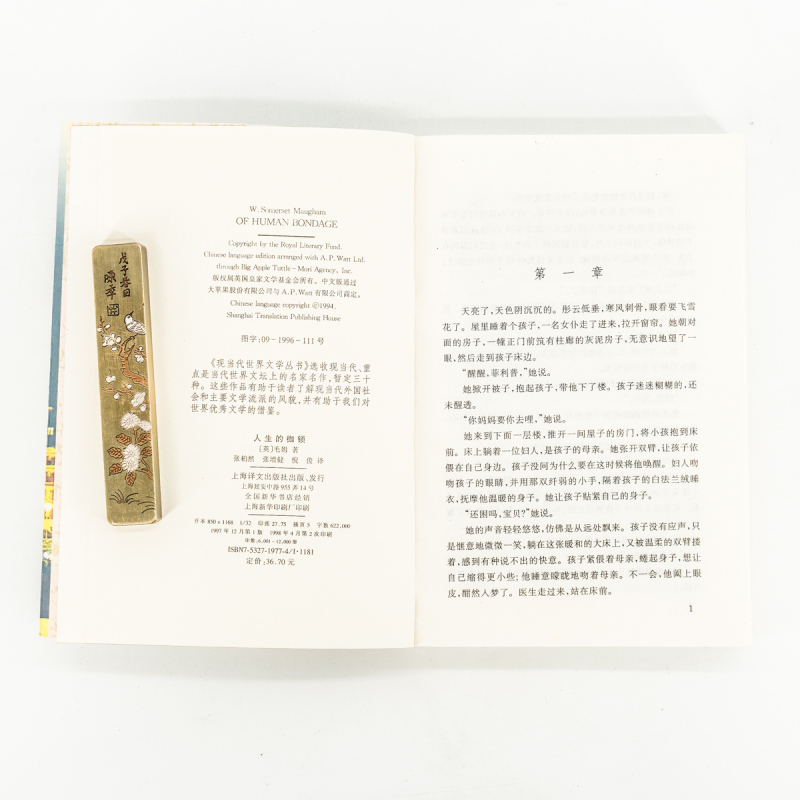 戊子春日
陈年国
W. Somerset Maugham
OF HUMAN BONDAGE
Copyright by the Royal Literary Fund.
Chinese language edition arranged with A. P. Watt Ltd.
through Big Apple Tuttle-Mori Agency, Inc.
版权局英国皇家文学基金会所有。中文版通过
大苹果股份有限公司与 A. P. Watt 有限公司商定。
Chinese language copyright ©1994.
Shanghai Translation Publishing House
图字:09-1996-111号
《现当代世界文学丛书》选收现当代、重
点是当代世界文坛上的名家名作,暂定三十
种。这些作品有助于读者了解现当代外国社
会和主要文学流派的风貌,并有助于我们对
世界优秀文学的借鉴。
人生的枷锁
[英]毛姆 著
张柏然 张增健 倪俊 译
上海译文出版社出版、发行
上海延安中路 955 弄 14 号
全国新华书店经销
上海新华印刷厂印刷
开本 850×1168 1/32 印张 27.75 插页 5 字数 622,000
1997 年 12 月第 1 版 1998 年 4 月第 2 次印刷
印数:6,001-12,000 册
ISBN7-5327-1977-4/I·1181
定价:36.70 元
第一章
天亮了,天色阴沉沉的。彤云低垂,寒风刺骨,眼看要飞雪
花了。屋里睡着个孩子,一名女仆走了进来,拉开窗帘。她朝对
面的房子,一幢正门前筑有柱廊的灰泥房子,无意识地望了一
眼,然后走到孩子床边。
“醒醒,菲利普,”她说。
她掀开被子,抱起孩子,带他下了楼。孩子迷迷糊糊的,还
未醒透。
“你妈妈要你去哩,”她说。
她来到下面一层楼,推开一间屋子的房门,将小孩抱到床
前。床上躺着一位妇人,是孩子的母亲。她张开双臂,让孩子依
偎在自己身边。孩子没问为什么要在这时候将他唤醒。妇人吻
吻孩子的眼睛,并用那双纤弱的小手,隔着孩子的白法兰绒睡
衣,抚摩他温暖的身子。她让孩子贴紧自己的身子。
“还困吗,宝贝?”她说。
她的声音轻轻悠悠,仿佛是从远处飘来。孩子没有应声,只
是惬意地微微一笑,躺在这张暖和的大床上,又被温柔的双臂搂
着,感到有种说不出的快意。孩子紧偎着母亲,蜷起身子,想让
自己缩得更小些;他睡意朦胧地吻着母亲。不一会,他阖上眼
皮,酣然入梦了。医生走过来,站在床前。
1